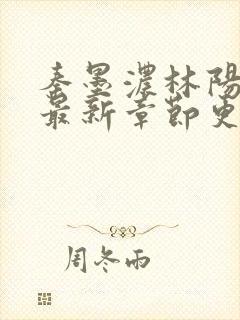 秦墨濃林陽
最新章節更
周冬雨